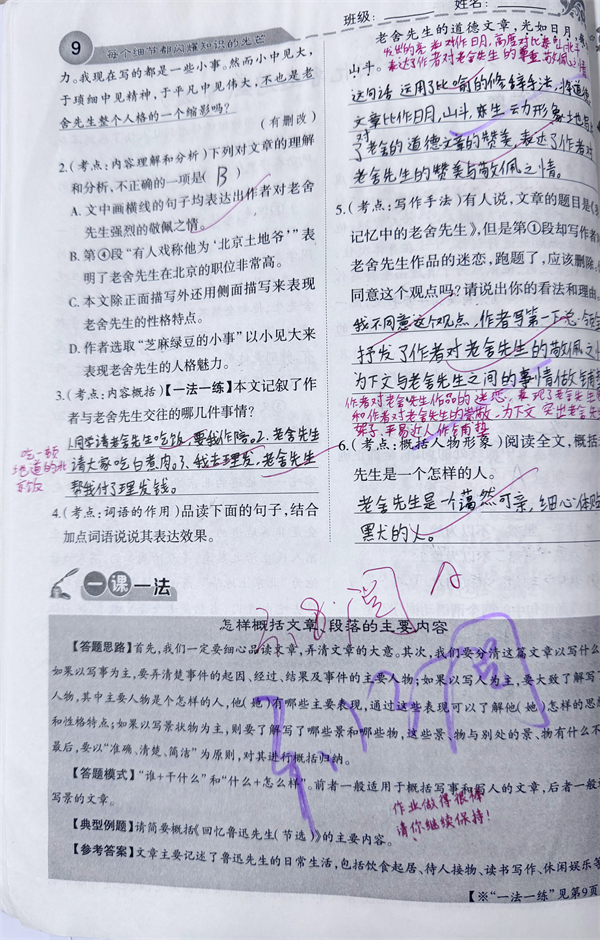 9
每个细节都闪耀知识的光芒
班级:
姓名:
力。我现在写的都是一些小事。然而小中见大,
于琐细中见精神,于平凡中见伟大,不也是老
舍先生整个人格的一个缩影吗?
(有删改)
2.(考点:内容理解和分析)下列对文章的理解
和分析,不正确的一项是( B )
A. 文中画横线的句子均表达出作者对老舍
先生强烈的敬佩之情。
B. 第④段“有人戏称他为‘北京土地爷’”表
明了老舍先生在北京的职位非常高。
C. 本文除正面描写外还用侧面描写来表现
老舍先生的性格特点。
D. 作者选取“芝麻绿豆的小事”以小见大来
表现老舍先生的人格魅力。
3.(考点:内容概括)【一法一练】本文记叙了作
者与老舍先生交往的哪几件事情?
1.同学请老舍先生吃饭,要我作陪。2.老舍先生
请大家吃白煮肉。3.我去理发,老舍先生
帮我付了理发钱。
吃一顿
地道的北
京饭
4.(考点:词语的作用)品读下面的句子,结合
加点词语说说其表达效果。
老舍先生的道德文章,光如日月,
山斗。
表达了作者对老舍先生的尊重敬佩
这句话运用了比喻的修辞手法,将道德
文章比作日月,山斗,生动形象地写
对
了老舍的道德文章的赞美,表达了作者对
老舍先生的赞美与敬佩之情。
5.(考点:写作手法)有人说,文章的题目是《
记忆中的老舍先生》,但是第①段却写作者
老舍先生作品的迷恋,跑题了,应该删除,
同意这个观点吗?请说出你的看法和理由。
我不同意这个观点,作者写第一下总领全
抒发了作者对老舍先生的敬佩之
为下文与老舍先生之间的事情做铺
作者对老舍先生作品的迷恋,表现了老舍先生
和作者对老舍先生的崇敬,为下文突出老舍先生
架子,平易近人作铺垫
6.(考点:概括人物形象)阅读全文,概括
先生是一个怎样的人。
老舍先生是一个蔼然可亲,细心体贴
的人。
一课一法
阅 A
怎样概括文章、段落的主要内容
【答题思路】首先,我们一定要细心品读文章,弄清文章的大意。其次,我们要分清这篇文章以写什么
如果以写事为主,要弄清楚事件的起因、经过、结果及事件的主要人物;如果以写人为主,要大致了解写了
人物,其中主要人物是个怎样的人,他(她)有哪些主要表现,通过这些表现可以了解他(她)怎样的思想
和性格特点;如果以写景状物为主,则要了解写了哪些景和哪些物,这些景、物与别处的景、物有什么不
最后,要以“准确、清楚、简洁”为原则,对其进行概括归纳。
【答题模式】“谁+干什么”和“什么+怎么样”。前者一般适用于概括写事和写人的文章,后者一般
写景的文章。
作业做得很棒
请你继续保持!
【典型例题】请简要概括《回忆鲁迅先生(节选)》的主要内容。
【参考答案】文章主要记述了鲁迅先生的日常生活,包括饮食起居、待人接物、读书写作、休闲娱乐等
【※“一法一练”见第9页